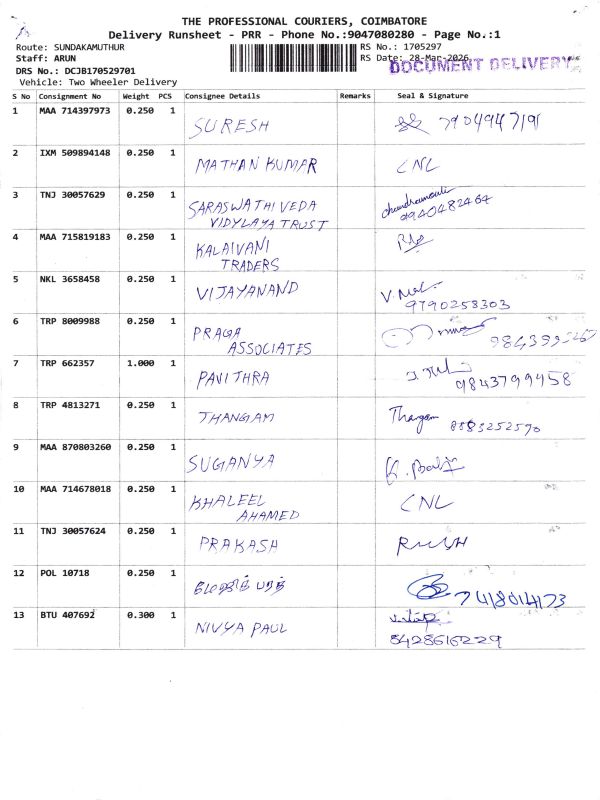 THE PROFESSIONAL COURIERS, COIMBATORE
Delivery Runsheet - PRR - Phone No.:9047080280 - Page No.:1
Route: SUNDAKAMUTHUR RS No.: 1705297
Staff: ARUN RS Date: 28-Mar-2026
DOCUMENT DELIVERY
DRS No.: DCJB170529701
Vehicle: Two Wheeler Delivery
S No Consignment No Weight PCS Consignee Details Remarks Seal & Signature
1 MAA 714397973 0.250 1 SURESH
2 IXM 509894148 0.250 1 MATHAN KUMAR CNL
3 TNJ 30057629 0.250 1 SARASWATHI VEDA
VIDYLAYA TRUST 9940482464
4 MAA 715819183 0.250 1 KALAIVANI
TRADERS
5 NKL 3658458 0.250 1 VIJAYANAND
9790258303
6 TRP 8009988 0.250 1 PRAGA
ASSOCIATES
7 TRP 662357 1.000 1 PAVITHRA
9843799458
8 TRP 4813271 0.250 1 THANGAM Thangam
9 MAA 870803260 0.250 1 SUGANYA
10 MAA 714678018 0.250 1 KHALEEL
AHAMED CNL
11 TNJ 30057624 0.250 1 PRAKASH
12 POL 10718 0.250 1
13 BTU 407692 0.300 1 NIVYA PAUL
8428616229